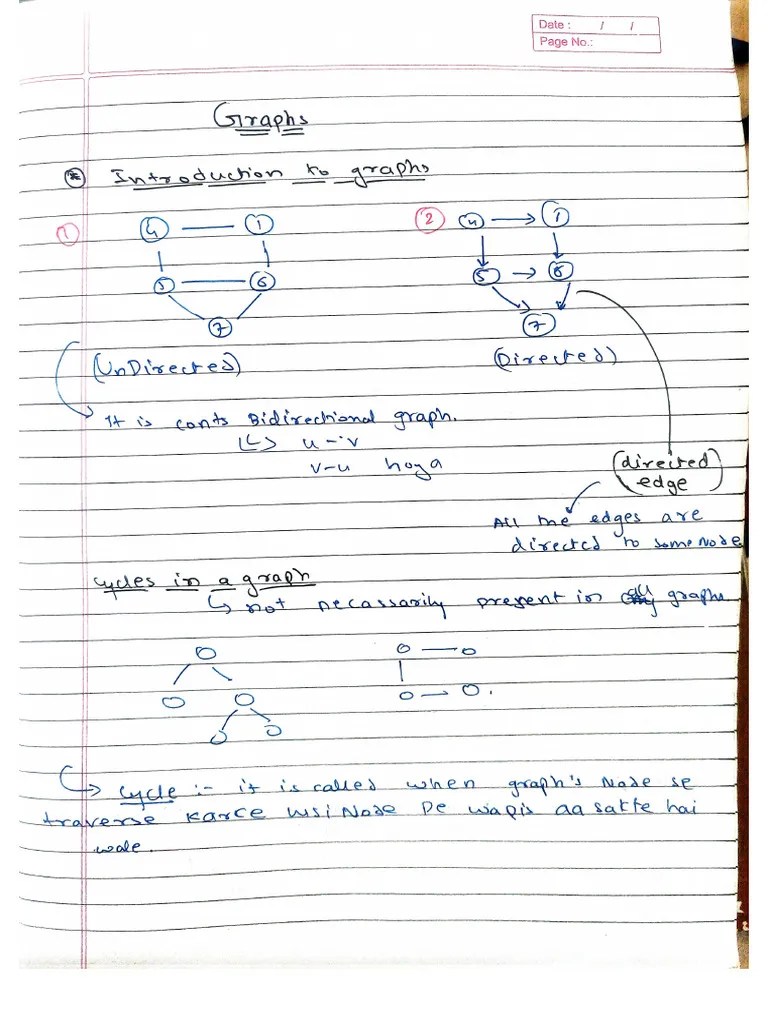 Date : / /
Page No.:
Graphs
* Introduction to graphs
1
4 1
5 6
7
2
4 1
5 6
7
(UnDirected)
(Directed)
It is conts Bidirectional graph.
u-v
v-u hoga
(directed edge)
All the edges are
directed to some Node
Cycles in a graph
not necassarily present in graphs
Cycle :- it is called when graph's Node se
traverse karce usi Node pe wapis aa sakte hai
wale.